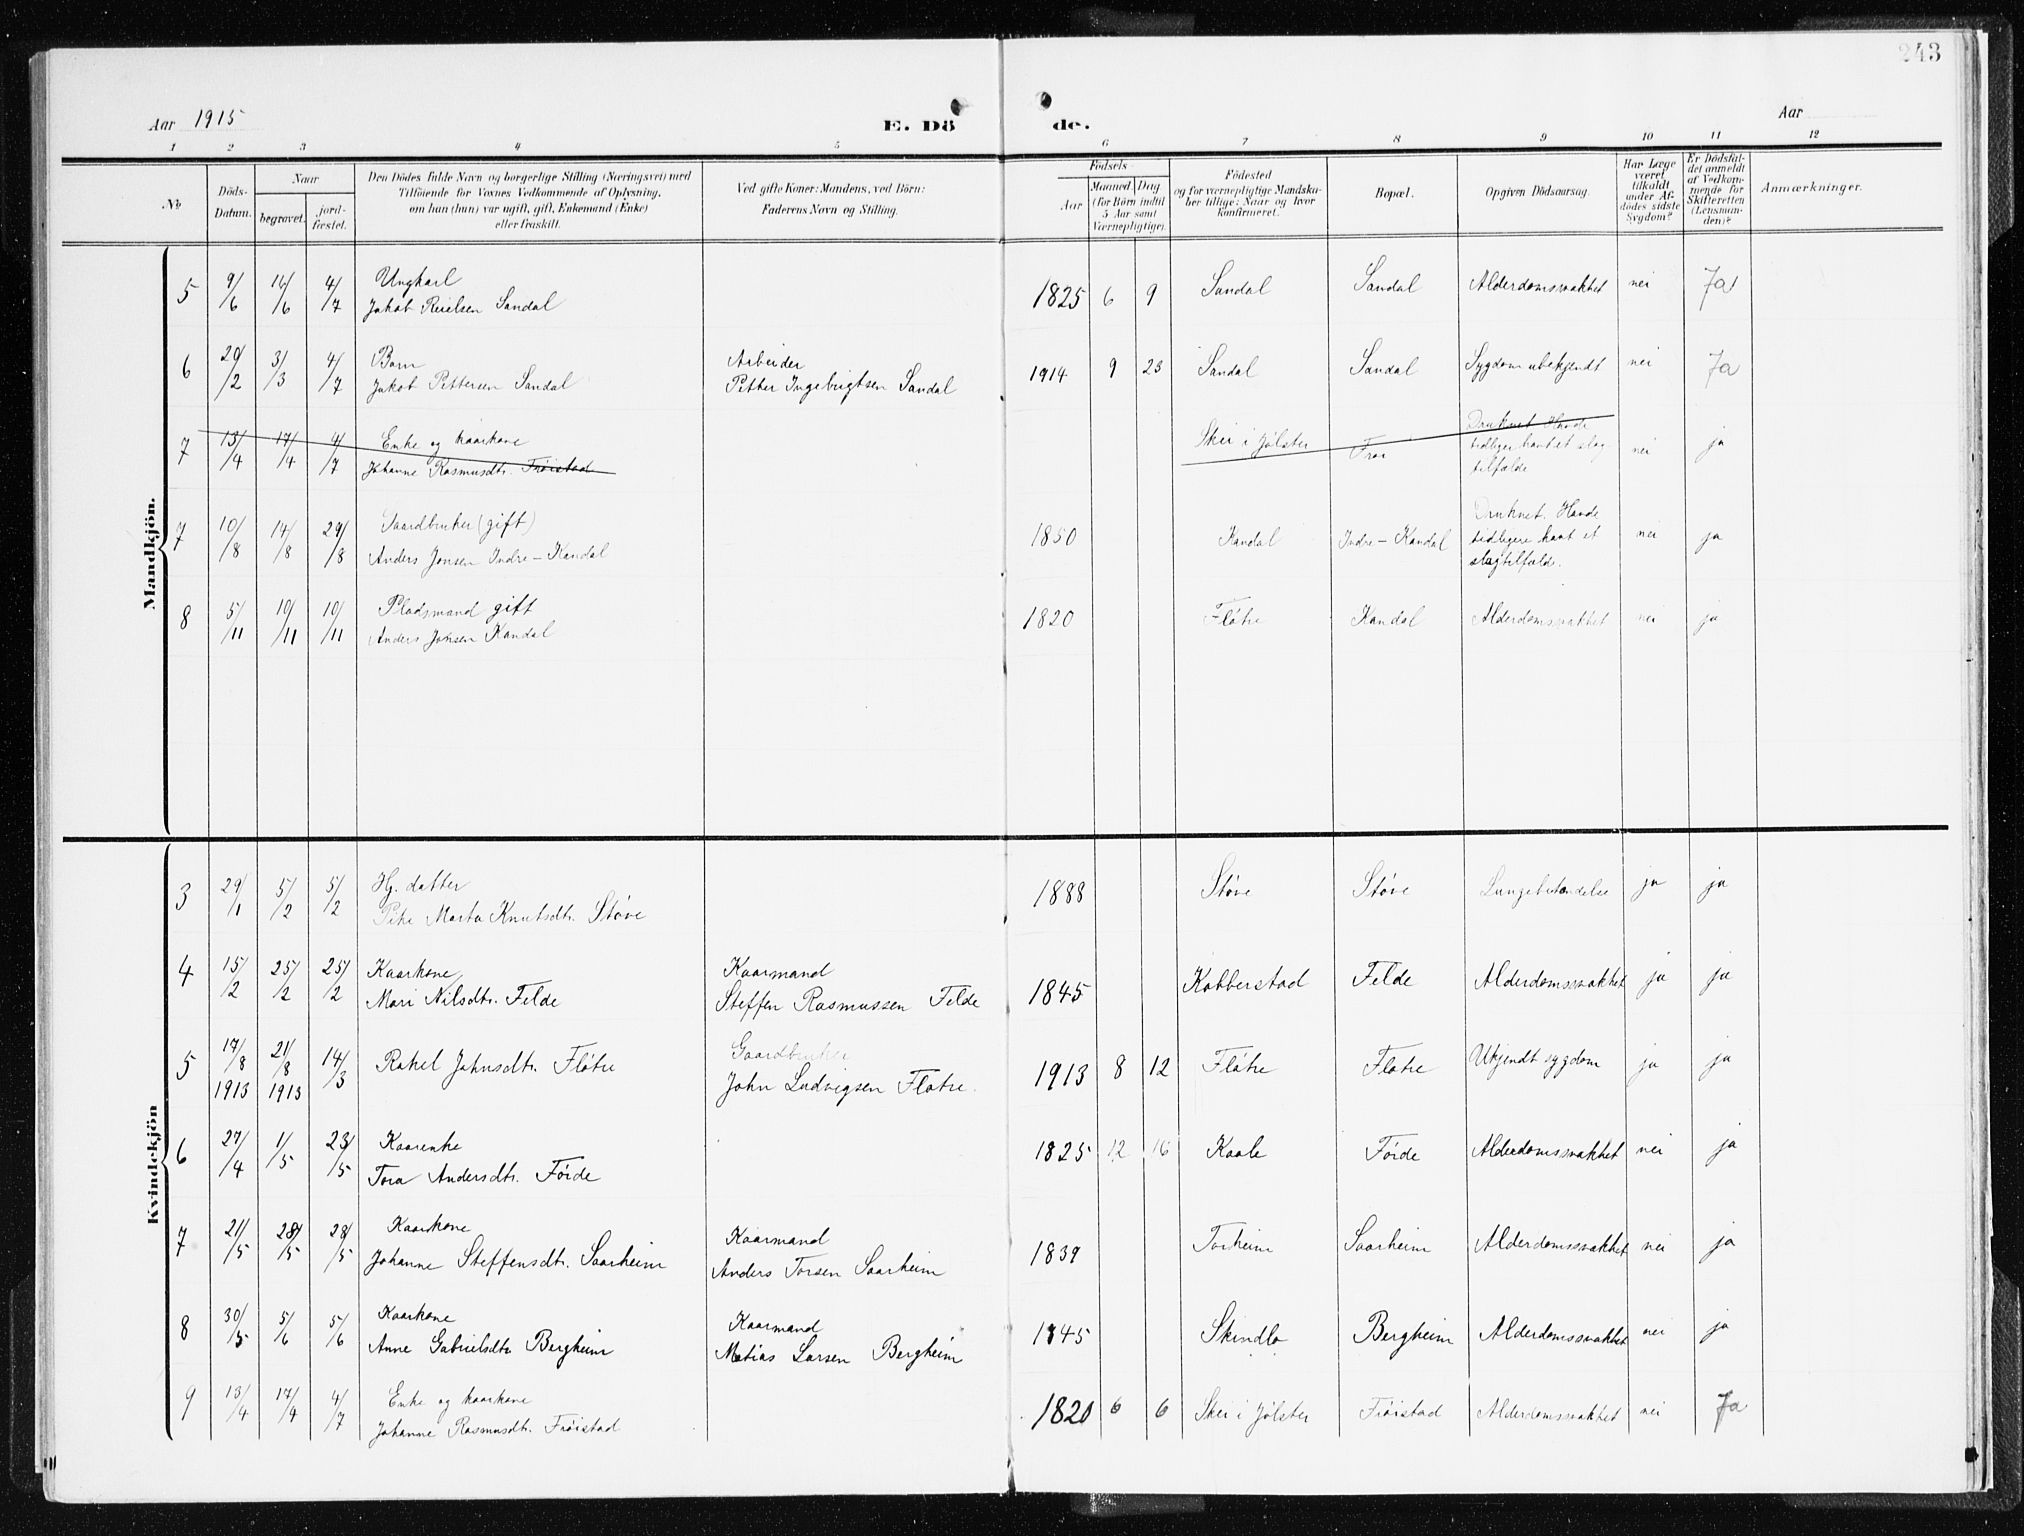 243
Aar 1915 E. Dö de. Aar
1 2 3 4 5 6 7 8 9 10 11 12
No
Döds-Datum.
Naar
begravet.
jord-fæstet.
Den Dödes fulde Navn og borgerlige Stilling (Næringsvei) med
Tilföiende for Voxnes Vedkommende af Oplysning,
om han (hun) var ugift, gift, Enkemand (Enke)
eller fraskilt.
Ved gifte Koner: Mandens, ved Börn:
Faderens Navn og Stilling.
Fødsels
Aar
Maaned Dag
(for Börn indtil
5 Aar samt
Værnepligtige).
Födested
og for værnepligtige Mandska-
ber tillige: Naar og hvor
konfirmeret.
Bopæl.
Opgiven Dödsaarsag.
Har Læge
været
tilkaldt
under Af-
dödes sidste
Sygdom?
Er Dödsfal-
det anmeldt
af Vedkom-
mende for
Skifteretten
(Lensman-
den)?
Anmærkninger.
Mandkjön.
5 9/6 16/6 4/7 Ungkarl
Jakob Reielsen Sandal 1825 6 9 Sandal Sandal Alderdomssvakhet nei Ja
6 20/2 3/3 4/7 Barn Arbeider
Jakob Pettersen Sandal Petter Ingebrigtsen Sandal 1914 9 23 Sandal Sandal Sygdom ubekjendt nei Ja
7 13/4 17/4 4/7 Enke og kaarkone
Johanne Rasmusdtr. Fröistad Skei i Jølster Frøi Druknet Havde
tidligere havt et slag
tilfælde nei ja
7 10/8 14/8 29/8 Gaardbruker (gift)
Anders Jonsen Indre-Kandal 1850 Kandal Indre-Kandal Druknet. Havde
tidligere havt et
slagtilfæld. nei ja
8 5/11 10/11 10/11 Pladsmand gift
Anders Johsen Kandal 1820 Fløtre Kandal Alderdomssvakhet nei ja
Kvindekjön
3 29/1 5/2 5/2 Hj. datter
Pike Marta Knutsdtr. Støve 1888 Støve Støve Lungebetændelse ja ja
4 15/2 25/2 25/2 Kaarkone Kaarmand
Mari Nilsdtr. Felde Steffen Rasmussen Felde 1845 Kobberstad Felde Alderdomssvakhet ja ja
5 17/8 1913 21/8 1913 14/3 Rakel Johnsdtr. Fløtre Gaardbruker
John Ludvigsen Fløtre. 1913 8 12 Fløtre Fløtre Ukjendt sygdom ja ja
6 27/4 1/5 23/5 Kaarenke
Tora Andersdtr. Førde 1825 12 16 Kaale Førde Alderdomssvakhet nei ja
7 21/5 28/5 28/5 Kaarkone Kaarmand
Johanne Steffensdtr. Saarheim Anders Torsen Saarheim 1839 Torheim Saarheim Alderdomssvakhet nei ja
8 30/5 5/6 5/6 Kaarkone Kaarmand
Anne Gabrielsdtr Bergheim Matias Larsen Bergheim 1845 Skindlo Bergheim Alderdomssvakhet nei ja
9 13/4 17/4 4/7 Enke og kaarkone
Johanne Rasmusdtr. Frøistad 1820 6 6 Skei i Jølster Frøistad Alderdomssvakhet nei Ja